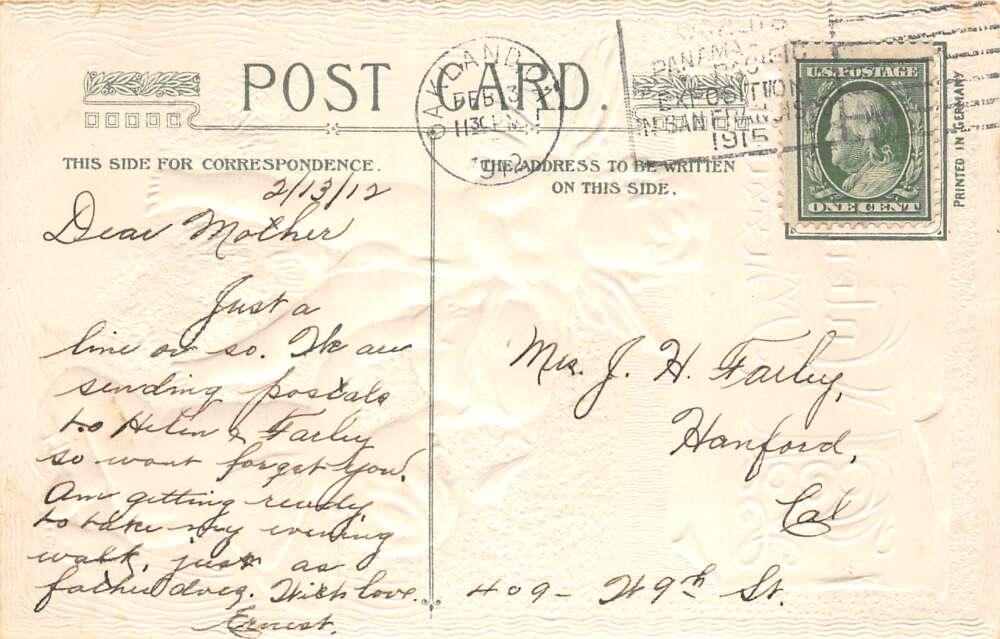 POST CARD.
OAKLAND
FEB 13
11 30 PM
1912
WORLD'S
PANAMA-
PACIFIC
EXPOSITION
IN SAN FRANCISCO
1915
U.S. POSTAGE
ONE CENT
PRINTED IN GERMANY
THIS SIDE FOR CORRESPONDENCE.
THE ADDRESS TO BE WRITTEN
ON THIS SIDE.
2/13/12
Dear Mother
Just a
line or so. We are
sending postals
to Helen & Farley
so wont forget you.
Am getting ready
to take my evening
walk, just as
father does. With love.
Ernest.
Mrs. J. H. Farley,
Hanford,
Cal
409 - W 9th St.